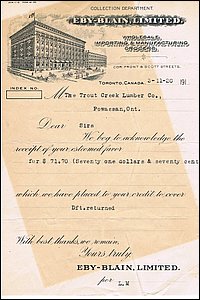 COLLECTION DEPARTMENT.
EBY-BLAIN, LIMITED.
WHOLESALE
IMPORTING & MANUFACTURING
GROCERS
COR. FRONT & SCOTT STREETS.
TORONTO, CANADA, 5-11-20 191
INDEX NO.
M The Trout Creek Lumber Co.,
Powassan, Ont.
Dear Sirs
We beg to acknowledge the
receipt of your esteemed favor
for $ 71.70 (Seventy one dollars & seventy cent
which we have placed to your credit to cover
Dft. returned
With best thanks, we remain,
Yours truly,
EBY-BLAIN, LIMITED.
per L.M